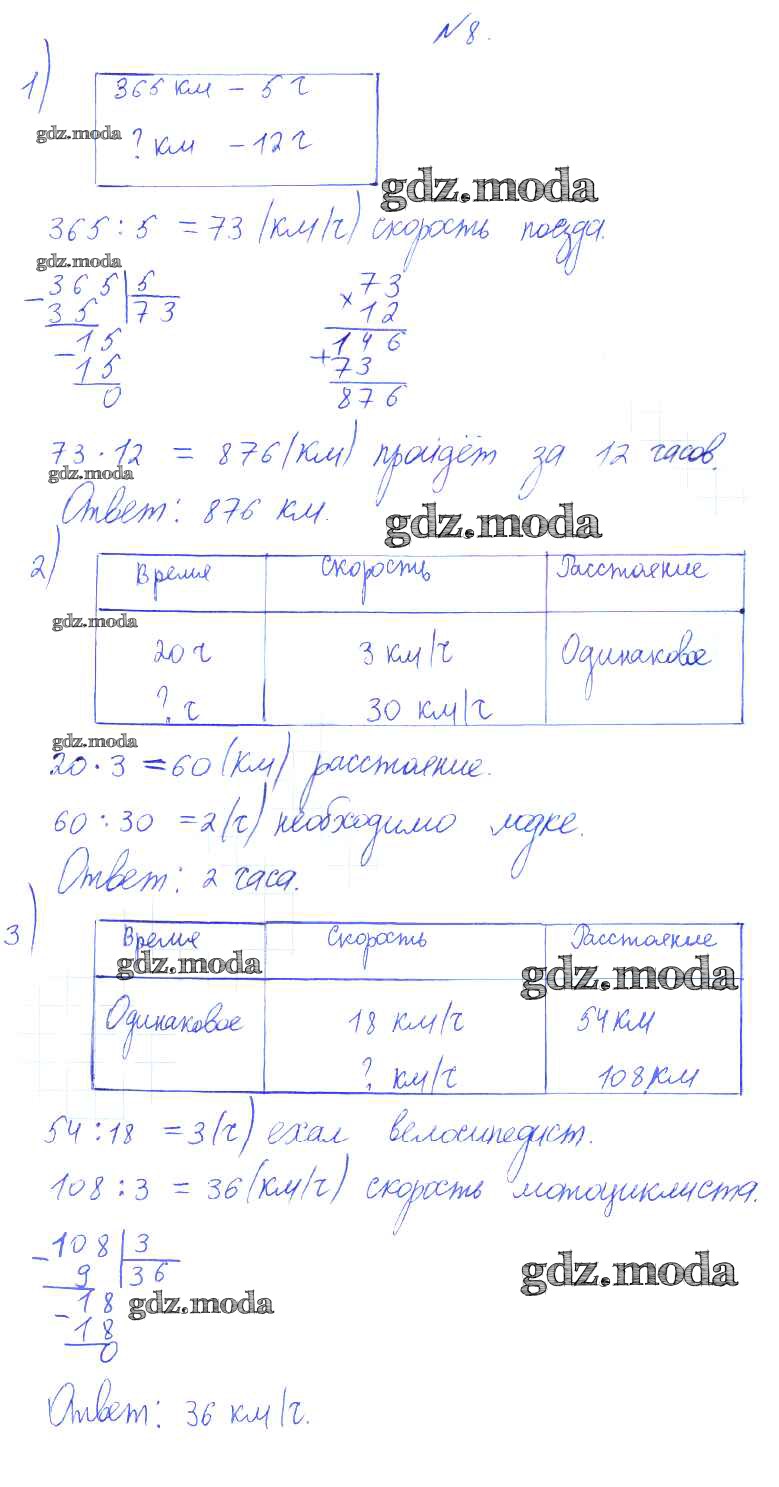 №8.
1)
365 км – 5 ч
gdz.moda
? км – 12 ч
gdz.moda
365 : 5 = 73 (км/ч) скорость поезда.
gdz.moda
365 | 5
35 | 73
15
15
0
73
× 12
146
+ 73
876
73 · 12 = 876 (км) пройдёт за 12 часов.
gdz.moda
Ответ: 876 км.
gdz.moda
2)
Время Скорость Расстояние
gdz.moda
20 ч 3 км/ч Одинаковое
? ч 30 км/ч
gdz.moda
20 · 3 = 60 (км) расстояние.
60 : 30 = 2 (ч) необходимо лодке.
Ответ: 2 часа.
3)
Время Скорость Расстояние
gdz.moda gdz.moda
Одинаковое 18 км/ч 54 км
? км/ч 108 км
54 : 18 = 3 (ч) ехал велосипедист.
108 : 3 = 36 (км/ч) скорость мотоциклиста.
108 | 3
9 | 36
18
18
0
gdz.moda
gdz.moda
Ответ: 36 км/ч.